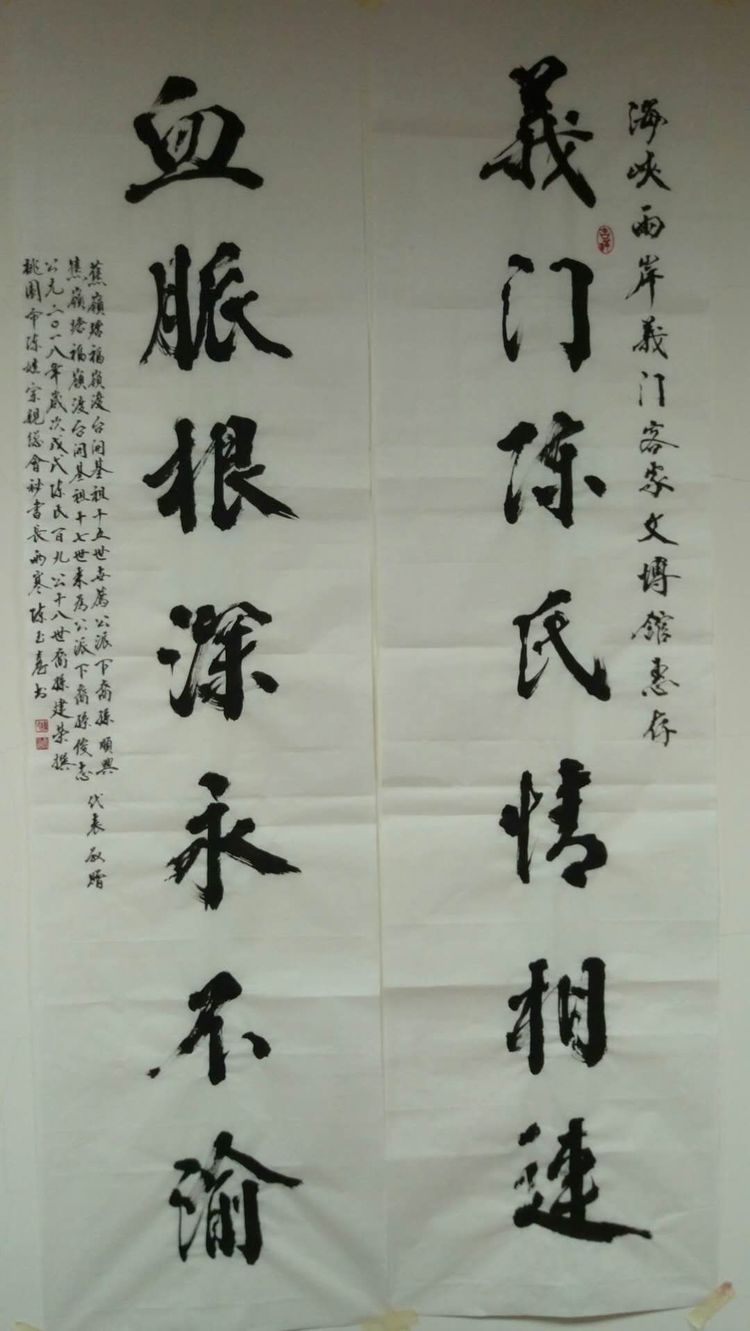 海峡两岸義门客家文博館惠存
義门陈氏情相連
血脈根深永不渝
蕉嶺 福嶺渡台開基祖十五世 公派下裔孫順興
蕉嶺 福嶺渡台開基祖十七世來為公派下裔孫俊志 代表敬贈
公元二〇一八年歲次戊戌陈氏百九公十八世裔孫建榮撰
桃園市陈姓宗親総會祕書長雨寒陈玉 书